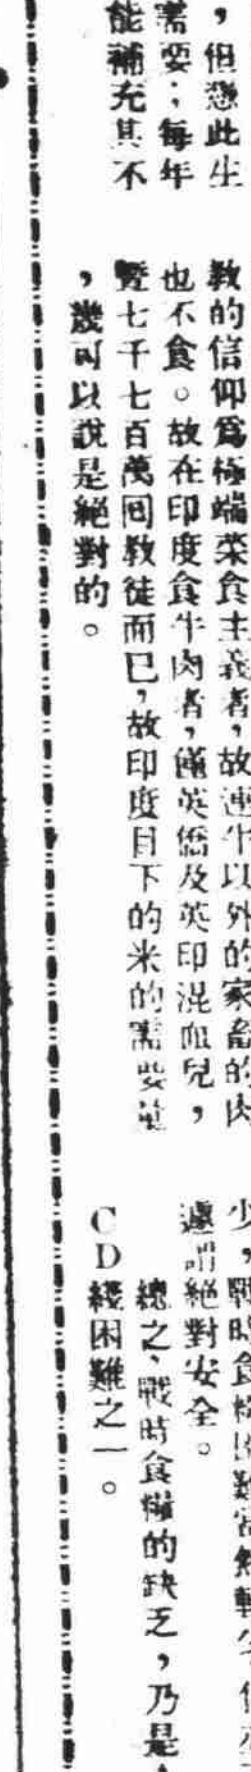 ，但戀此生
需要；每年
能補充其不
教的信仰爲極端菜食主義者，故連牛以外的家畜的肉
也不食。故在印度食牛肉者，僅英僑及英印混血兒，
暨七千七百萬回教徒而已，故印度目下的米的需要量
，幾可以說是絕對的。
少，戰時食糧困難當然較少，但
遽謂絕對安全。
總之，戰時食糧的缺乏，乃是
ＣＤ綫困難之一。